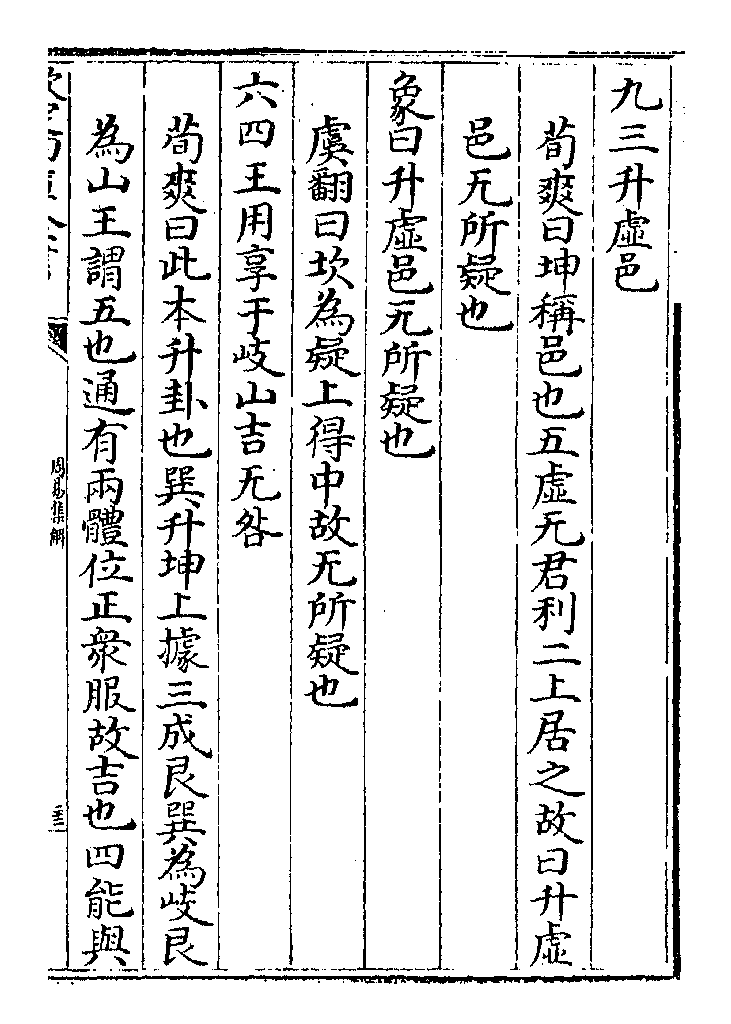 九三升虛邑
荀爽曰坤稱邑也五虛无君利二上居之故曰升虛
邑无所疑也
象曰升虛邑无所疑也
虞翻曰坎為疑上得中故无所疑也
六四王用享于岐山吉无咎
荀爽曰此本升卦也巽升坤上據三成艮巽為岐艮
為山王謂五也通有兩體位正衆服故吉也四能與
周易集解